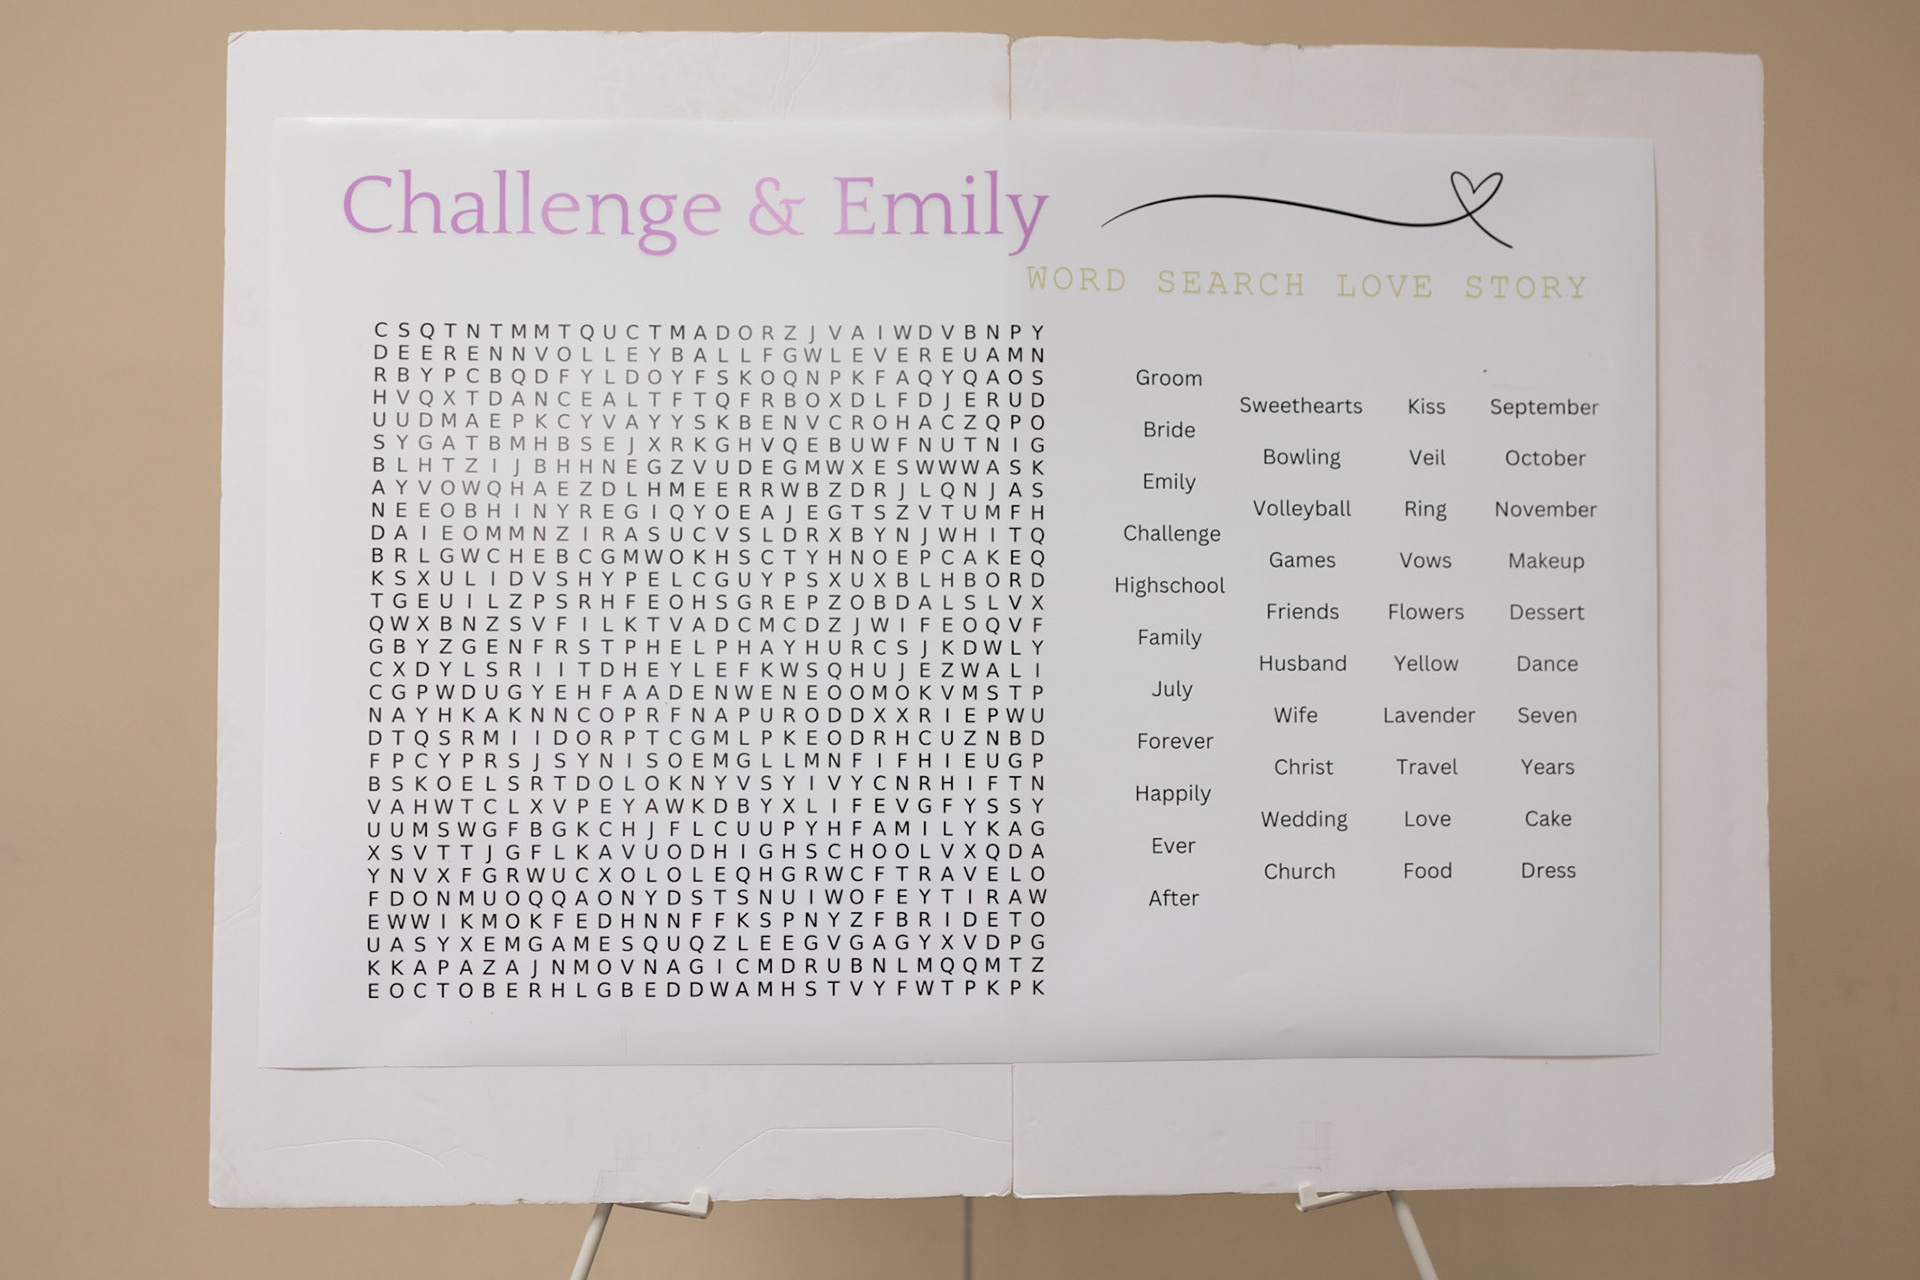 Challenge & Emily
WORD SEARCH LOVE STORY
C S Q T N T M M T Q U C T M A D O R Z J V A I W D V B N P Y
D E E R E N N V O L L E Y B A L L F G W L E V E R E U A M N
R B Y P C B Q D F Y L D O Y F S K O Q N P K F A Q Y Q A O S
H V Q X T D A N C E A L T F T Q F R B O X D L F D J E R U D
U U D M A E P K C Y V A Y Y S K B E N V C R O H A C Z Q P O
S Y G A T B M H B S E J X R K G H V Q E B U W F N U T N I G
B L H T Z I J B H H N E G Z V U D E G M W X E S W W W A S K
A Y V O W Q H A E Z D L H M E E R R W B Z D R J L Q N J A S
N E E O B H I N Y R E G I Q Y O E A J E G T S Z V T U M F H
D A I E O M M N Z I R A S U C V S L D R X B Y N J W H I T Q
B R L G W C H E B C G M W O K H S C T Y H N O E P C A K E Q
K S X U L I D V S H Y P E L C G U Y P S X U X B L H B O R D
T G E U I L Z P S R H F E O H S G R E P Z O B D A L S L V X
Q W X B N Z S V F I L K T V A D C M C D Z J W I F E O Q V F
G B Y Z G E N F R S T P H E L P H A Y H U R C S J K D W L Y
C X D Y L S R I I T D H E Y L E F K W S Q H U J E Z W A L I
C G P W D U G Y E H F A A D E N W E N E O O M O K V M S T P
N A Y H K A K N N C O P R F N A P U R O D D X X R I E P W U
D T Q S R M I I D O R P T C G M L P K E O D R H C U Z N B D
F P C Y P R S J S Y N I S O E M G L L M N F I F H I E U G P
B S K O E L S R T D O L O K N Y V S Y I V Y C N R H I F T N
V A H W T C L X V P E Y A W K D B Y X L I F E V G F Y S S Y
U U M S W G F B G K C H J F L C U U P Y H F A M I L Y K A G
X S V T T J G F L K A V U O D H I G H S C H O O L V X Q D A
Y N V X F G R W U C X O L O L E Q H G R W C F T R A V E L O
F D O N M U O Q Q A O N Y D S T S N U I W O F E Y T I R A W
E W W I K M O K F E D H N N F F K S P N Y Z F B R I D E T O
U A S Y X E M G A M E S Q U Q Z L E E G V G A G Y X V D P G
K K A P A Z A J N M O V N A G I C M D R U B N L M Q Q M T Z
E O C T O B E R H L G B E D D W A M H S T V Y F W T P K P K
Groom
Bride
Emily
Challenge
Highschool
Family
July
Forever
Happily
Ever
After
Sweethearts Kiss September
Bowling Veil October
Volleyball Ring November
Games Vows Makeup
Friends Flowers Dessert
Husband Yellow Dance
Wife Lavender Seven
Christ Travel Years
Wedding Love Cake
Church Food Dress